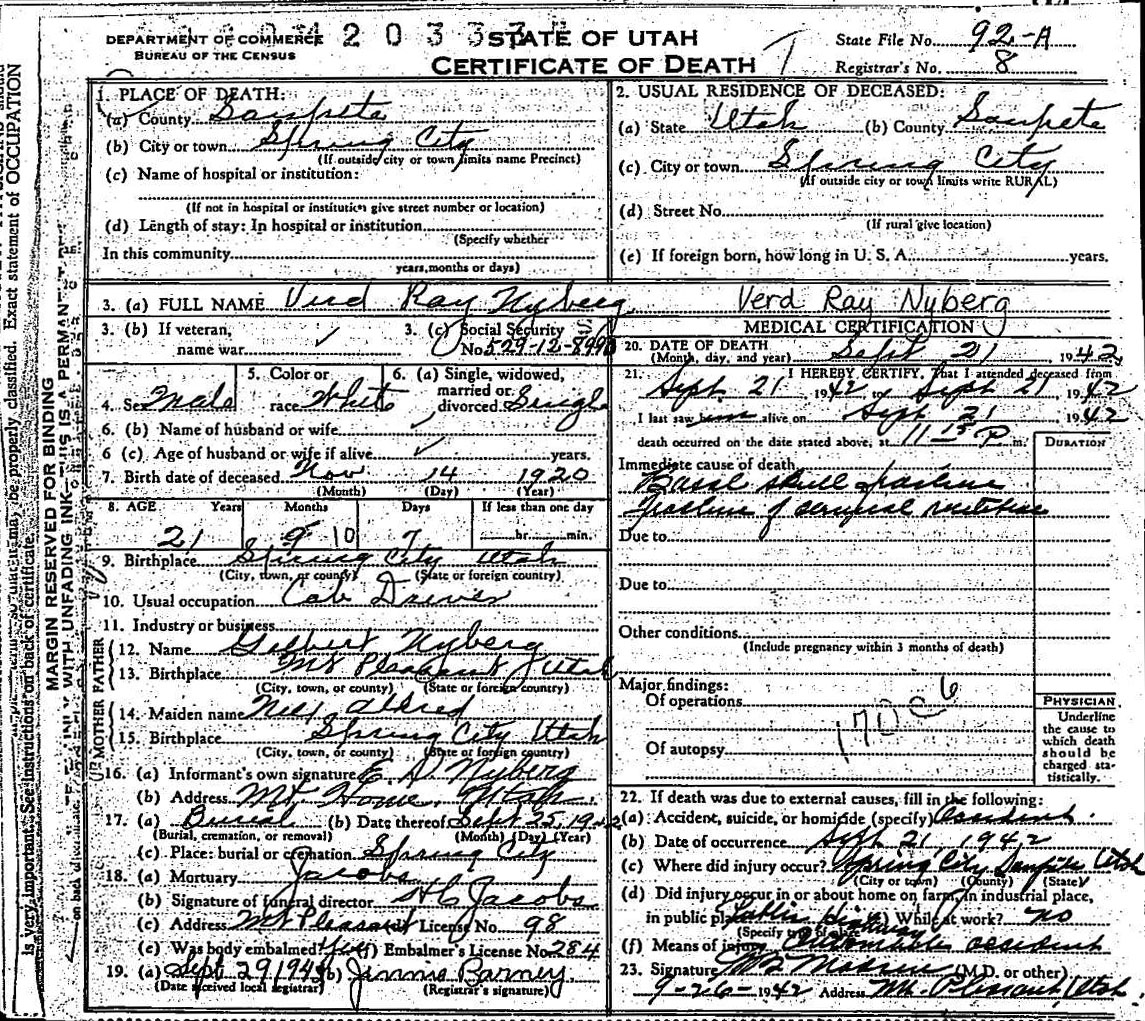 DEPARTMENT OF COMMERCE
BUREAU OF THE CENSUS
2 0 3 3
STATE OF UTAH
CERTIFICATE OF DEATH
State File No. 92-A
Registrar's No. 8
1. PLACE OF DEATH:
(a) County Sanpete
(b) City or town Spring City
(If outside city or town limits name Precinct)
(c) Name of hospital or institution:
(If not in hospital or institution give street number or location)
(d) Length of stay: In hospital or institution
(Specify whether
In this community
years, months or days)
2. USUAL RESIDENCE OF DECEASED:
(a) State Utah (b) County Sanpete
(c) City or town Spring City
(If outside city or town limits write RURAL)
(d) Street No.
(If rural give location)
(e) If foreign born, how long in U. S. A. years.
3. (a) FULL NAME Verd Ray Nyberg Verd Ray Nyberg
3. (b) If veteran, name war
3. (c) Social Security No. 529-12-8990
4. Sex Male
5. Color or race White
6. (a) Single, widowed, married or divorced Single
6. (b) Name of husband or wife
6 (c) Age of husband or wife if alive years.
7. Birth date of deceased Nov 14 1920
(Month) (Day) (Year)
8. AGE Years Months Days If less than one day
21 9 10 7 hr. min.
9. Birthplace Spring City Utah
(City, town, or county) (State or foreign country)
10. Usual occupation Cab Driver
11. Industry or business
FATHER
12. Name Gilbert Nyberg
13. Birthplace Mt Pleasant Utah
(City, town, or county) (State or foreign country)
MOTHER
14. Maiden name Aldred
15. Birthplace Spring City Utah
(City, town, or county) (State or foreign country)
16. (a) Informant's own signature Nyberg
(b) Address Mt. Home, Utah.
17. (a) Burial (b) Date thereof Sept 25, 1942
(Burial, cremation, or removal) (Month) (Day) (Year)
(c) Place: burial or cremation Spring City
18. (a) Mortuary Jacobs
(b) Signature of funeral director H C Jacobs
(c) Address Mt Pleasant License No. 98
(e) Was body embalmed? yes (f) Embalmer's License No. 284
19. (a) Sept 29 1942 (b) Jimmie Barney
(Date received local registrar) (Registrar's signature)
MEDICAL CERTIFICATION
20. DATE OF DEATH
(Month, day, and year) Sept 21, 1942
21. I HEREBY CERTIFY, That I attended deceased from
Sept. 21 1942 to Sept 21 1942
I last saw him alive on Sept 21 1942
death occurred on the date stated above, at 11 15 P m.
DURATION
Immediate cause of death
Basal skull fracture
Fracture of cervical vertebrae
Due to
Due to
Other conditions
(Include pregnancy within 3 months of death)
Major findings:
Of operations
170 c 6
Of autopsy
PHYSICIAN
Underline
the cause to
which death
should be
charged sta-
tistically.
22. If death was due to external causes, fill in the following:
(a) Accident, suicide, or homicide (specify) Accident
(b) Date of occurrence Sept 21, 1942
(c) Where did injury occur? Spring City Sanpete Utah
(City or town) (County) (State)
(d) Did injury occur in or about home on farm, in industrial place,
in public place? Public highway (e) While at work? no
(Specify type of place)
(f) Means of injury Automobile accident
23. Signature (M.D. or other)
9-26-1942 Address Mt. Pleasant, Utah
MARGIN RESERVED FOR BINDING
WITH UNFADING INK—THIS IS A PERMANENT
is very important. See instructions on back of certificate.
may be properly classified. Exact statement of OCCUPATION